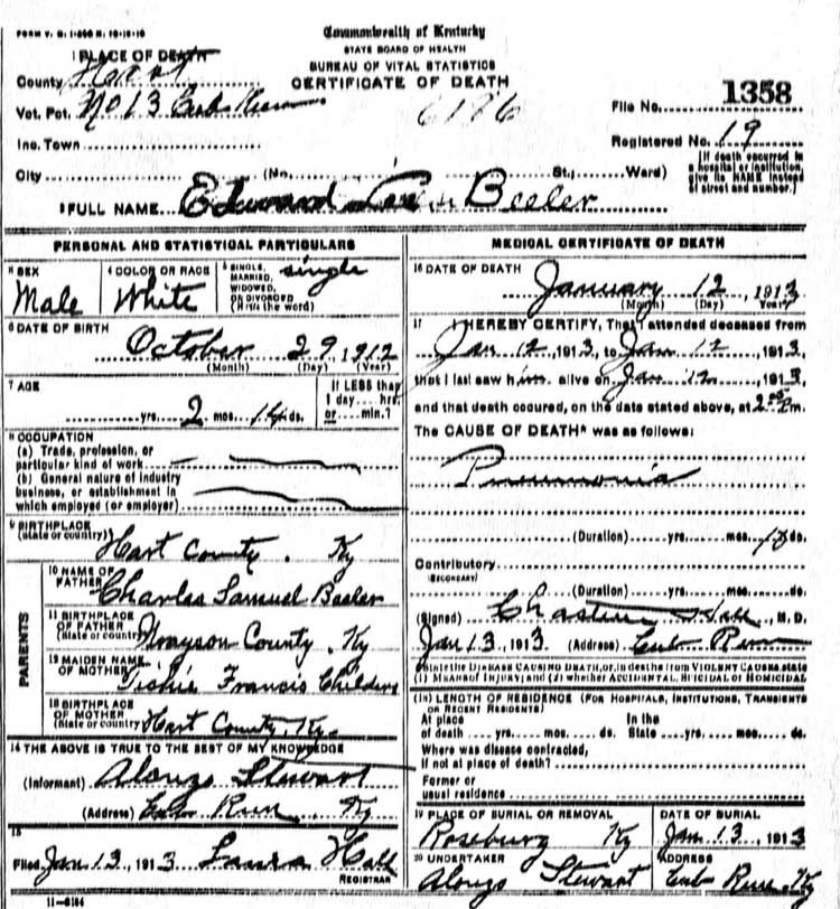 FORM V. S. 1-
Commonwealth of Kentucky
STATE BOARD OF HEALTH
BUREAU OF VITAL STATISTICS
CERTIFICATE OF DEATH
1 PLACE OF DEATH
County Hart
Vot. Pct. No 13 Cub Run
6186
File No. 1358
Inc. Town
Registered No. 19
City (No. St.; Ward)
[If death occurred in a hospital or institution, give its NAME instead of street and number.]
2 FULL NAME Edward Beeler
PERSONAL AND STATISTICAL PARTICULARS
3 SEX Male
4 COLOR OR RACE White
5 SINGLE, MARRIED, WIDOWED, OR DIVORCED (Write the word) single
6 DATE OF BIRTH
October 29, 1912
(Month) (Day) (Year)
7 AGE
yrs. 2 mos. 14 ds.
If LESS than 1 day.... hrs. or.... min.?
8 OCCUPATION
(a) Trade, profession, or
particular kind of work
(b) General nature of industry
business, or establishment in
which employed (or employer)
9 BIRTHPLACE
(State or country) Hart County. Ky
PARENTS
10 NAME OF FATHER Charles Samuel Beeler
11 BIRTHPLACE OF FATHER (State or country) Grayson County. Ky
12 MAIDEN NAME OF MOTHER Francis Childers
13 BIRTHPLACE OF MOTHER (State or country) Hart County. Ky.
14 THE ABOVE IS TRUE TO THE BEST OF MY KNOWLEDGE
(Informant) Alonzo Stewart
(Address) Cub Run Ky
15
Filed Jan 13, 1913 Laura Hall
REGISTRAR
11-6184
MEDICAL CERTIFICATE OF DEATH
16 DATE OF DEATH
January 12, 1913
(Month) (Day) (Year)
17 I HEREBY CERTIFY, That I attended deceased from
Jan 12, 1913, to Jan 12, 1913,
that I last saw him alive on Jan 12, 1913,
and that death occured, on the date stated above, at m.
The CAUSE OF DEATH* was as follows:
Pneumonia
(Duration) yrs. mos. ds.
Contributory
(SECONDARY)
(Duration) yrs. mos. ds.
(Signed) Chasteen Hall, M.D.
Jan 13, 1913. (Address) Cub Run
*State the DISEASE CAUSING DEATH, or, in deaths from VIOLENT CAUSES, state
(1) MEANS OF INJURY; and (2) whether ACCIDENTAL, SUICIDAL or HOMICIDAL
(18) LENGTH OF RESIDENCE (FOR HOSPITALS, INSTITUTIONS, TRANSIENTS
OR RECENT RESIDENTS)
At place of death yrs. mos. ds. In the State yrs. mos. ds.
Where was disease contracted,
if not at place of death?
Former or
usual residence
19 PLACE OF BURIAL OR REMOVAL
Roseburg Ky
DATE OF BURIAL
Jan 13, 1913
20 UNDERTAKER
Alonzo Stewart
ADDRESS
Cub Run, Ky